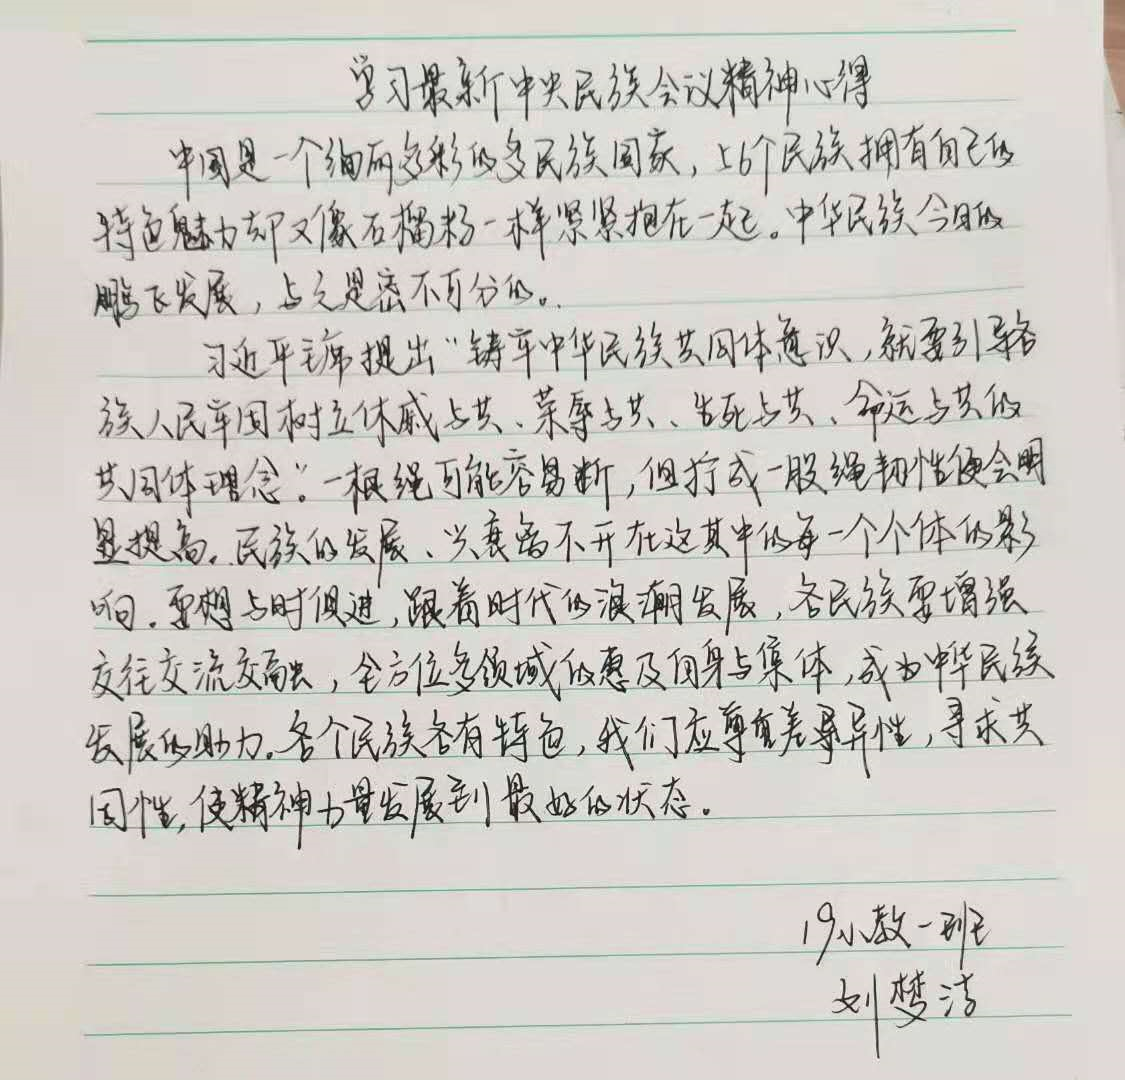 学习最新中央民族会议精神心得
中国是一个绚丽多彩的多民族国家，56个民族拥有自己的
特色魅力却又像石榴籽一样紧紧抱在一起。中华民族今日的
鹏飞发展，与之是密不可分的。
习近平主席提出“铸牢中华民族共同体意识，就要引导各
族人民牢固树立休戚与共、荣辱与共、生死与共、命运与共的
共同体理念”。一根绳可能容易断，但拧成一股绳韧性便会明
显提高。民族的发展、兴衰离不开在这其中的每一个个体的影
响。要想与时俱进，跟着时代的浪潮发展，各民族要增强
交往交流交融，全方位多领域的惠及自身与集体，成为中华民族
发展的助力。各个民族各有特色，我们应尊重差异性，寻求共
同性，使精神力量发展到最好的状态。
19小教一班
刘梦洁